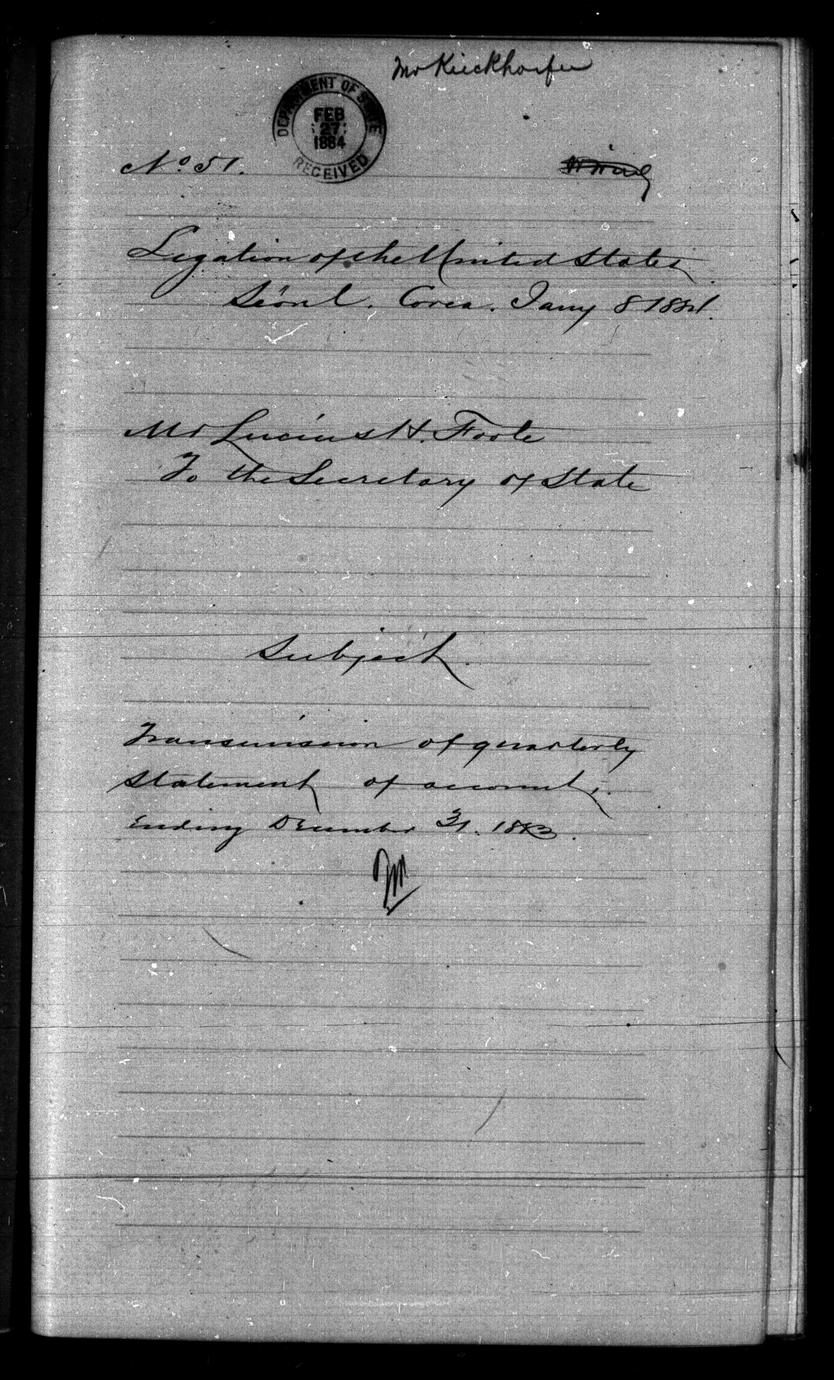 Mr Kieckhoefer
DEPARTMENT OF STATE
FEB
27
1884
RECEIVED
No 51.
Legation of the United States
Séoul. Corea. Jany 8 1884.
Mr Lucius H. Foote
To the Secretary of State
Subject.
Transmission of quarterly
statement of accounts.
Ending December 31. 1883.